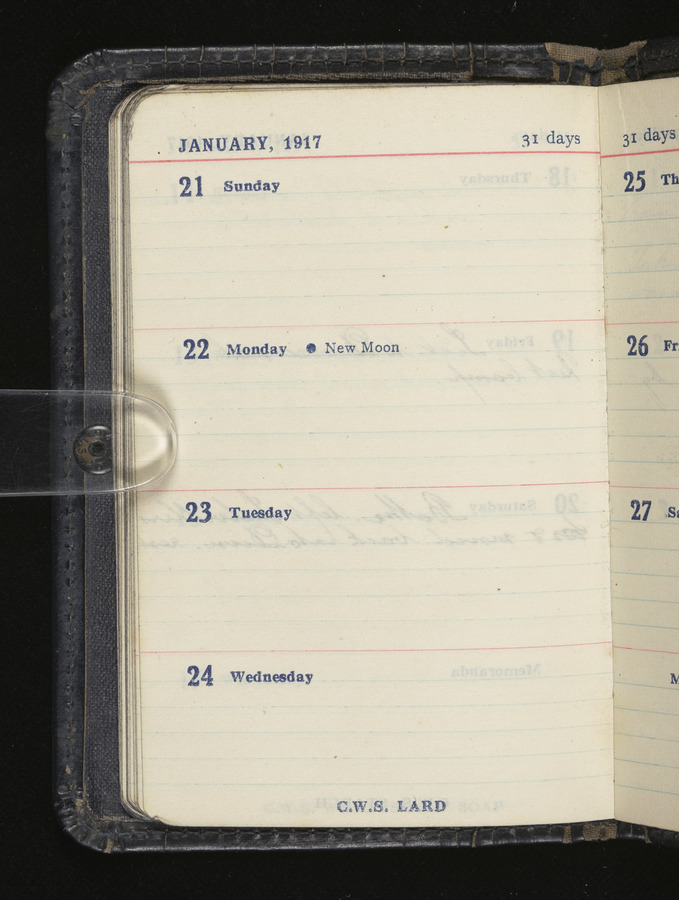 JANUARY, 1917 31 days
21 Sunday
22 Monday ● New Moon
23 Tuesday
24 Wednesday
C.W.S. LARD
31 days
25 Th
26 Fr
27 Sa
M